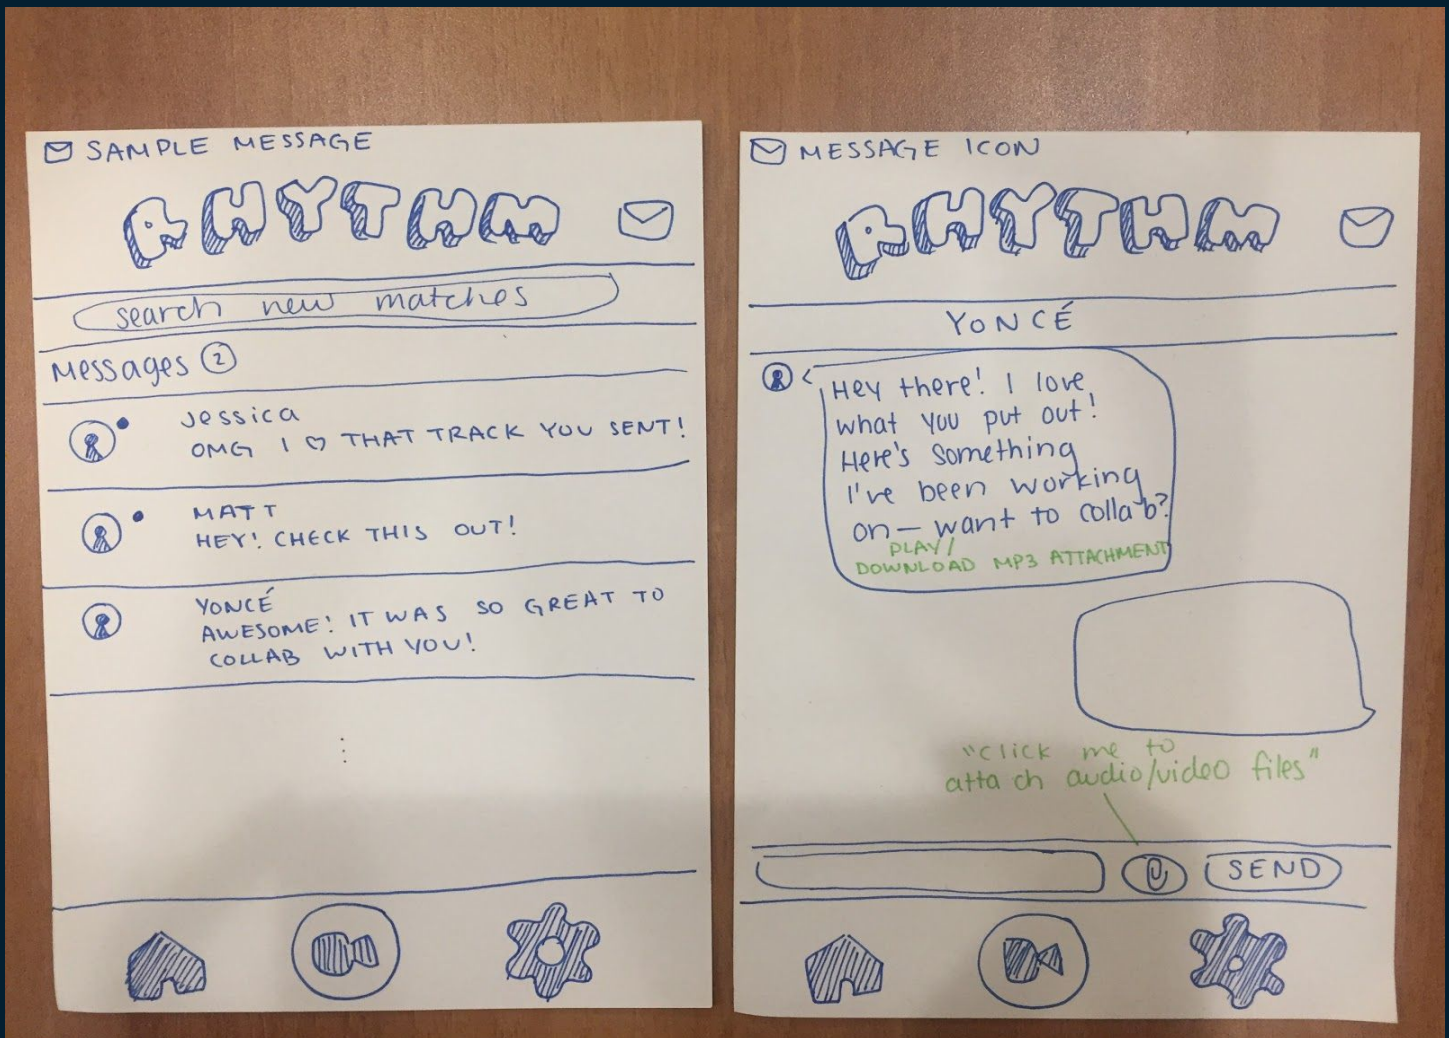 SAMPLE MESSAGE
RHYTHM
search new matches
Messages 2
Jessica
OMG I ♡ THAT TRACK YOU SENT!
MATT
HEY! CHECK THIS OUT!
YONCÉ
AWESOME! IT WAS SO GREAT TO
COLLAB WITH YOU!
MESSAGE ICON
RHYTHM
YONCÉ
Hey there! I love
what you put out!
Here's something
I've been working
on — want to collab?
PLAY/
DOWNLOAD MP3 ATTACHMENT
"click me to
attach audio/video files"
SEND